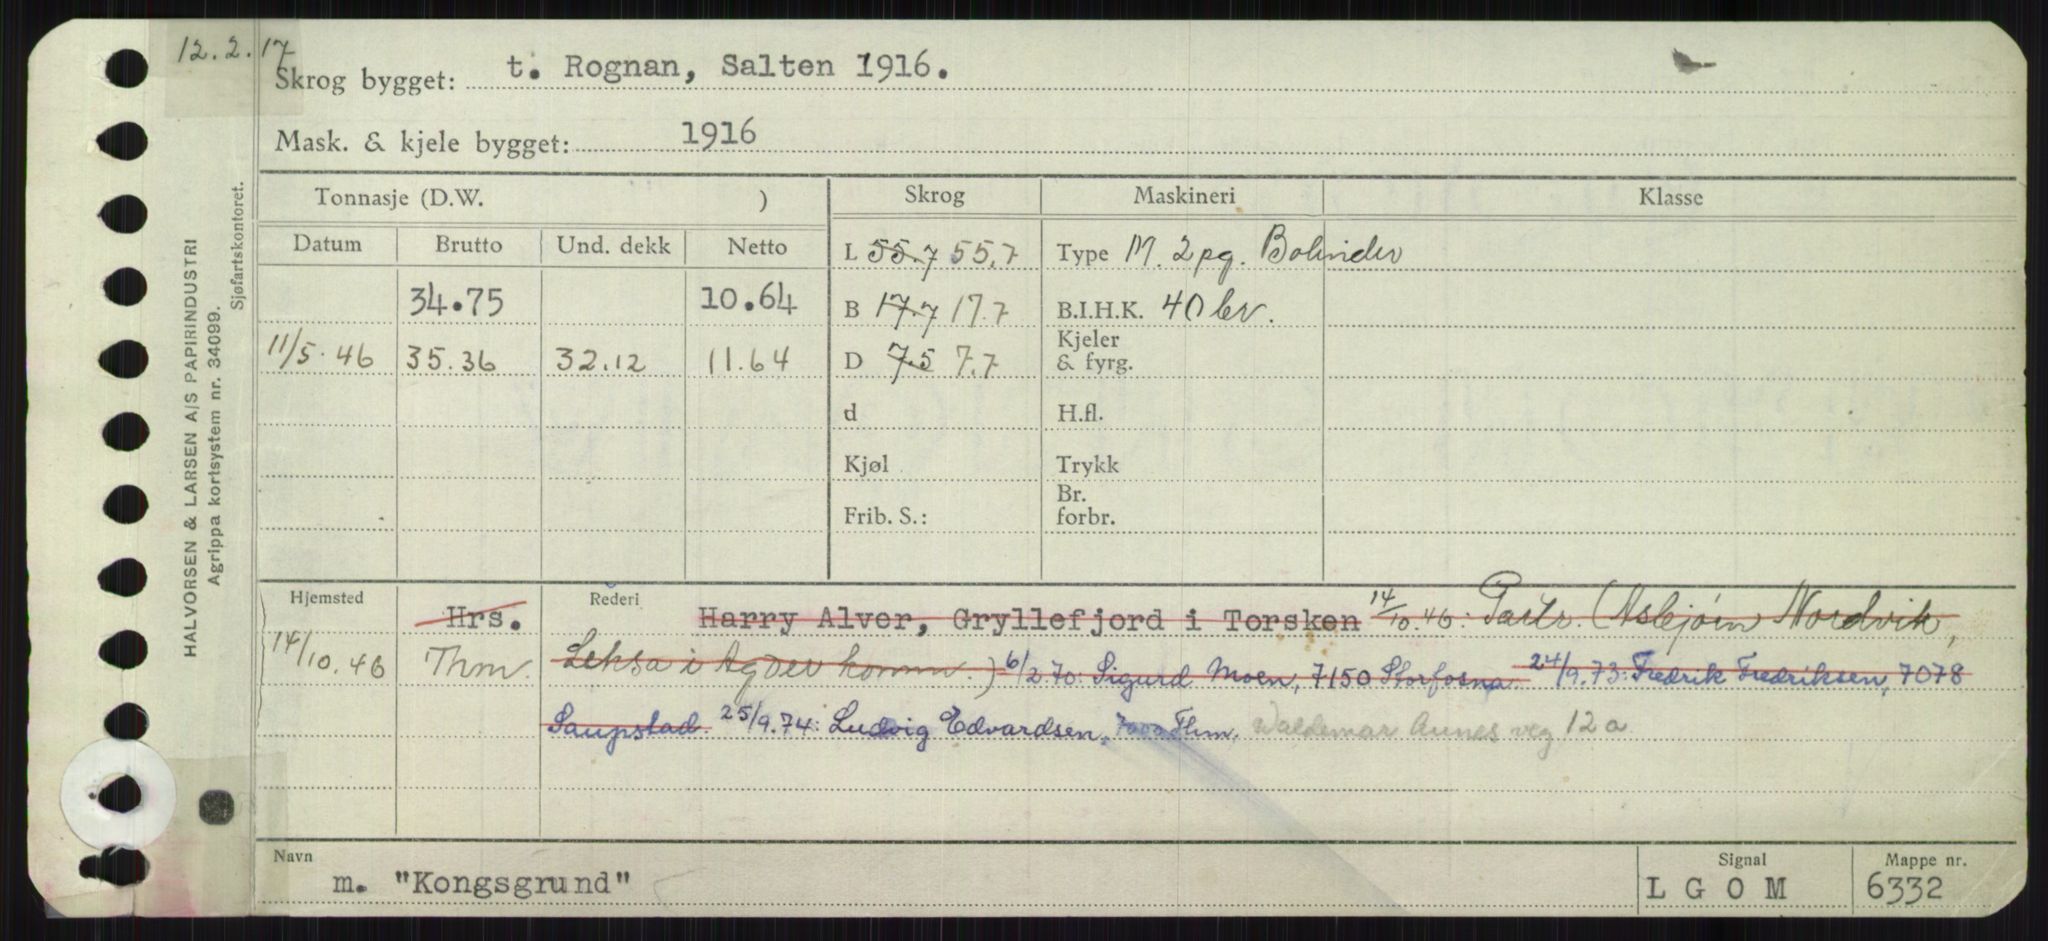 12.2.17
Skrog bygget: t. Rognan, Salten 1916.
Mask. & kjele bygget: 1916
Tonnasje (D.W. ) Skrog Maskineri Klasse
Datum Brutto Und. dekk Netto L 55.7 55.7 Type M. 2pg. Bolinder
34.75 10.64 B 17.7 17.7 B.I.H.K. 40 br.
11/5.46 35.36 32.12 11.64 D 7.5 7.7 Kjeler & fyrg.
d H.fl.
Kjøl Trykk
Frib. S.: Br. forbr.
Hjemsted Hrs. Rederi Harry Alver, Gryllefjord i Torsken 14/10.46: Partr. (Asbjørn Nordvik,
14/10.46 Thm. Leksa i Agder komm.) 6/2 70: Sigurd Moen, 7150 Storfosna. 24/9.73: Fredrik Fredriksen, 7078
Saupstad. 25/9.74: Ludvig Edvardsen, 7000 Thm, Waldemar Aunes veg 12a
Navn Signal Mappe nr.
m. "Kongsgrund" L G O M 6332
HALVORSEN & LARSEN A/S PAPIRINDUSTRI
Agrippa kortsystem nr. 34099.
Sjøfartskontoret.